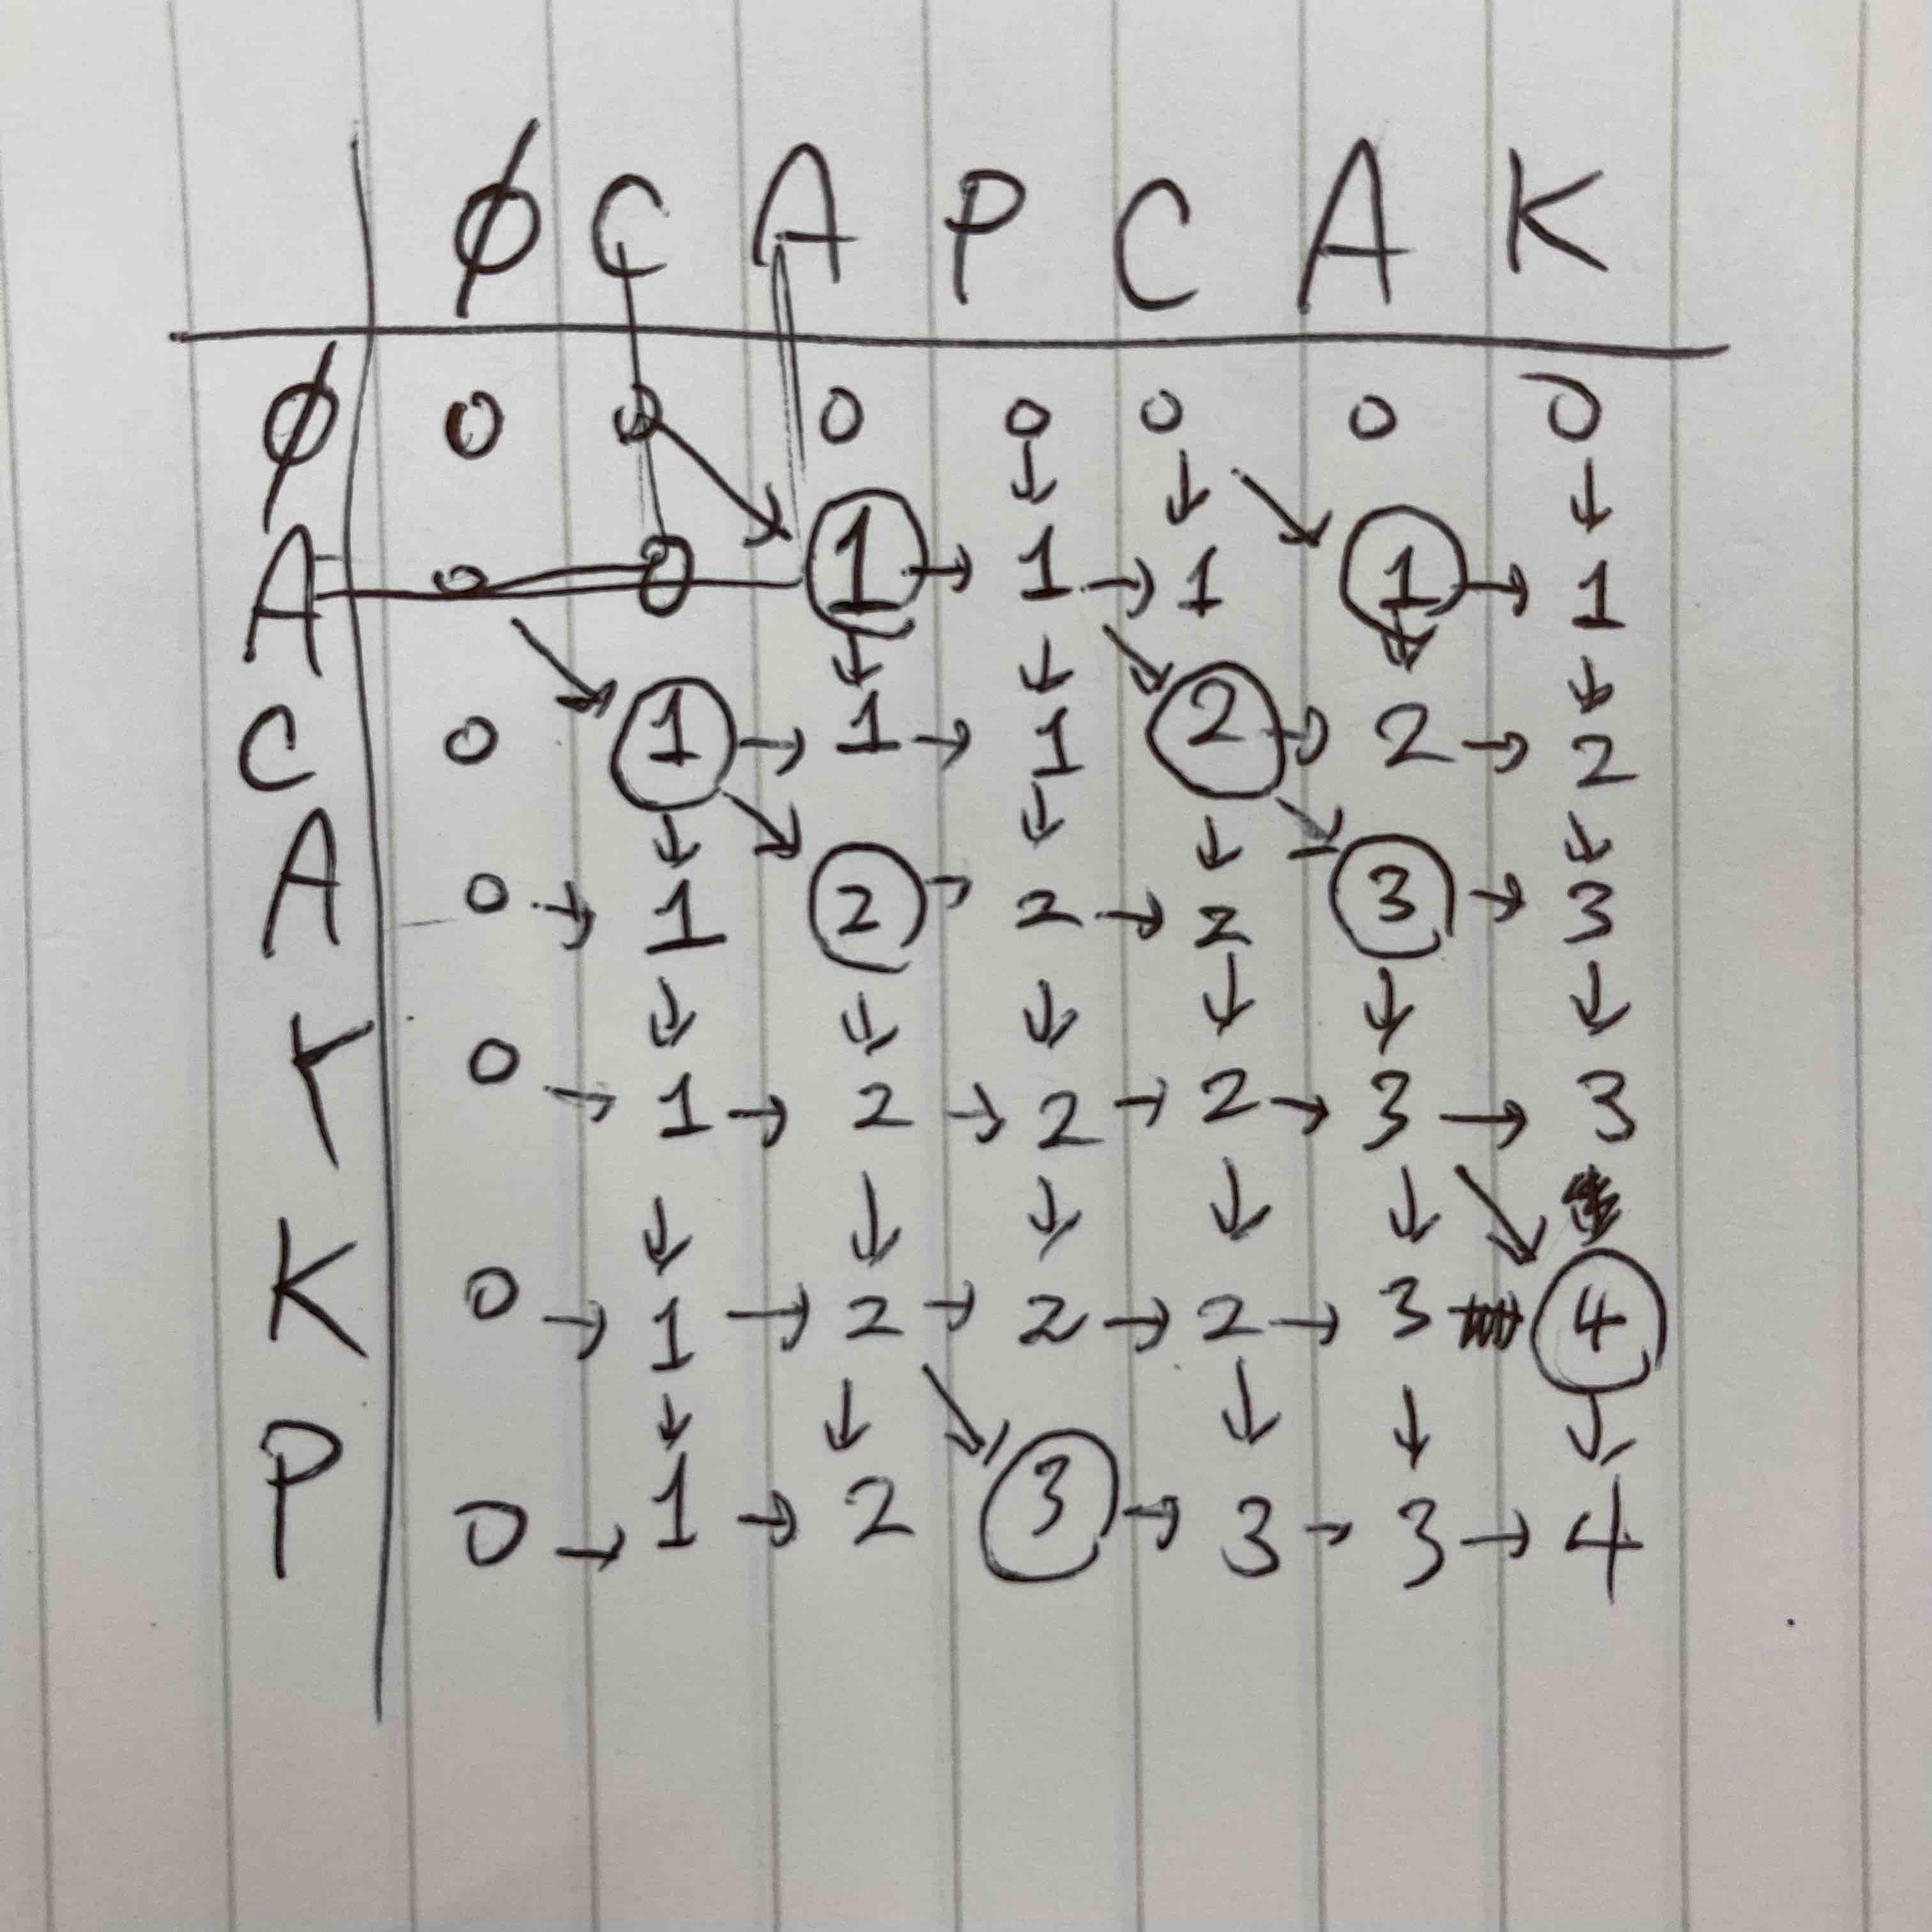 ∅ C A P C A K
∅ 0 0 0 0 0 0 0
A 0 0 1 → 1 → 1 1 → 1
C 0 1 → 1 → 1 2 → 2 → 2
A 0 → 1 2 → 2 → 2 3 → 3
0 → 1 → 2 → 2 → 2 → 3 → 3
K 0 → 1 → 2 → 2 → 2 → 3 4
P 0 → 1 → 2 3 → 3 → 3 → 4